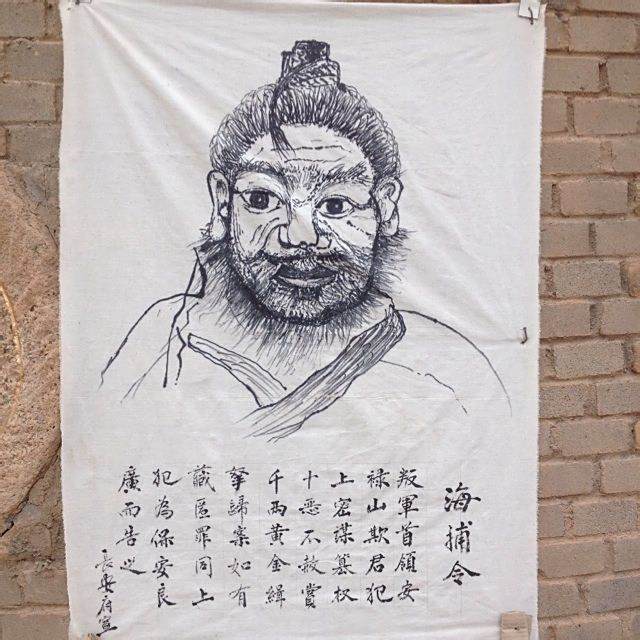 海捕令
叛軍首領安
禄山欺君犯
上密谋篡权
十恶不赦賞
千两黄金缉
拏歸案如有
藏匿罪同上
犯為保安良
廣而告之
長安府宣